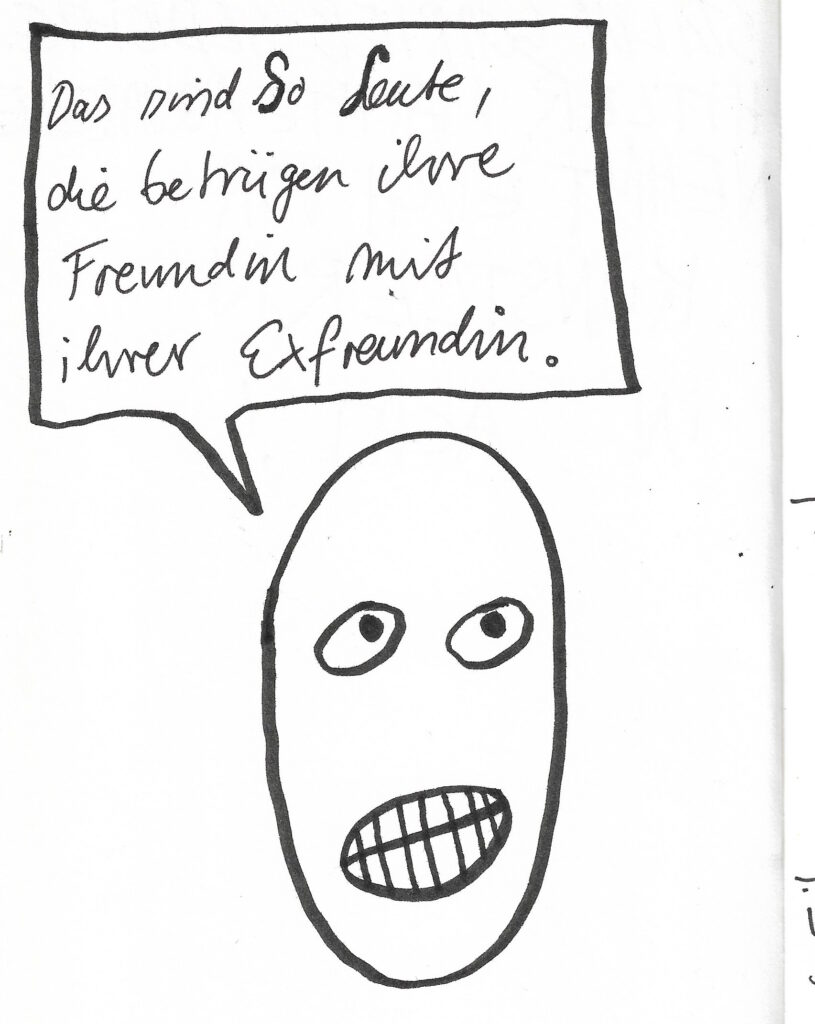 Das sind So Leute,
die betrügen ihre
Freundin mit
ihrer Exfreundin.